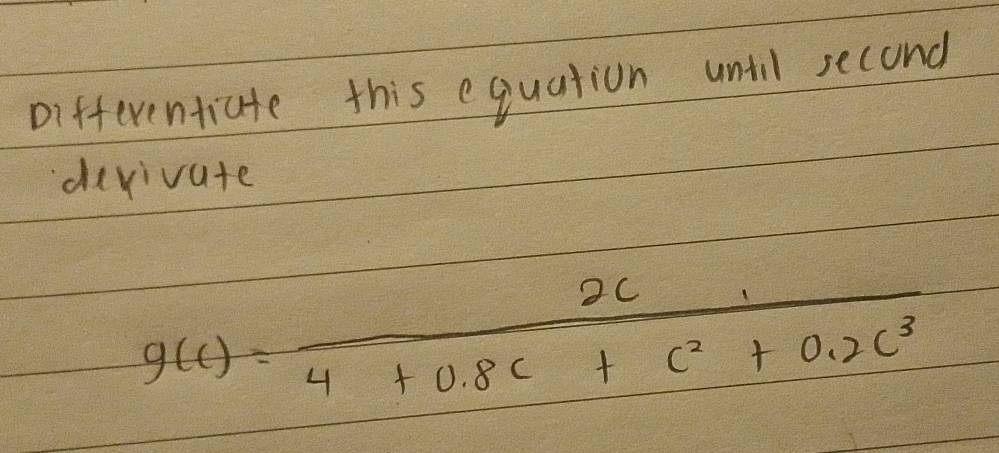 Differentiate this equation until second
derivate
g(c) = 2c / 4 + 0.8c + c² + 0.2c³